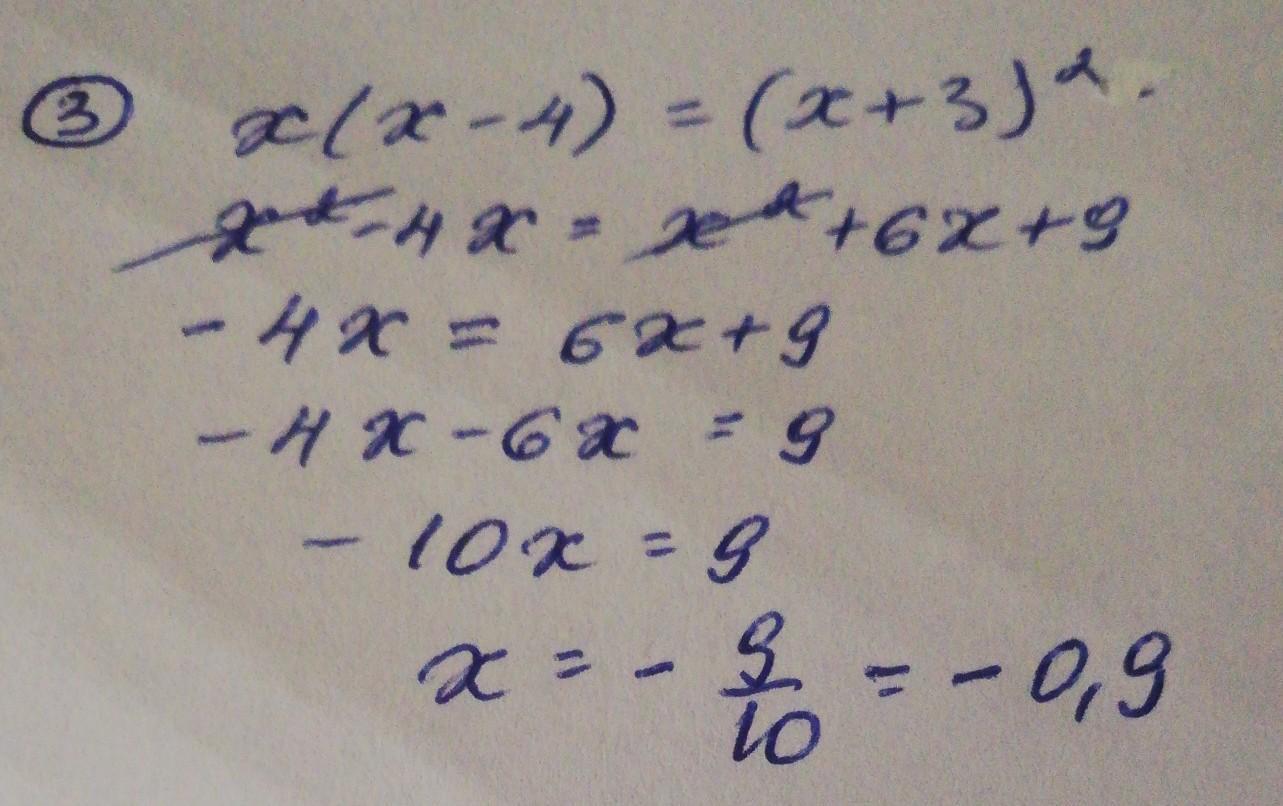 ③ x(x-4) = (x+3)².
x²-4x = x²+6x+9
-4x = 6x+9
-4x-6x = 9
-10x = 9
x = - 9/10 = - 0,9